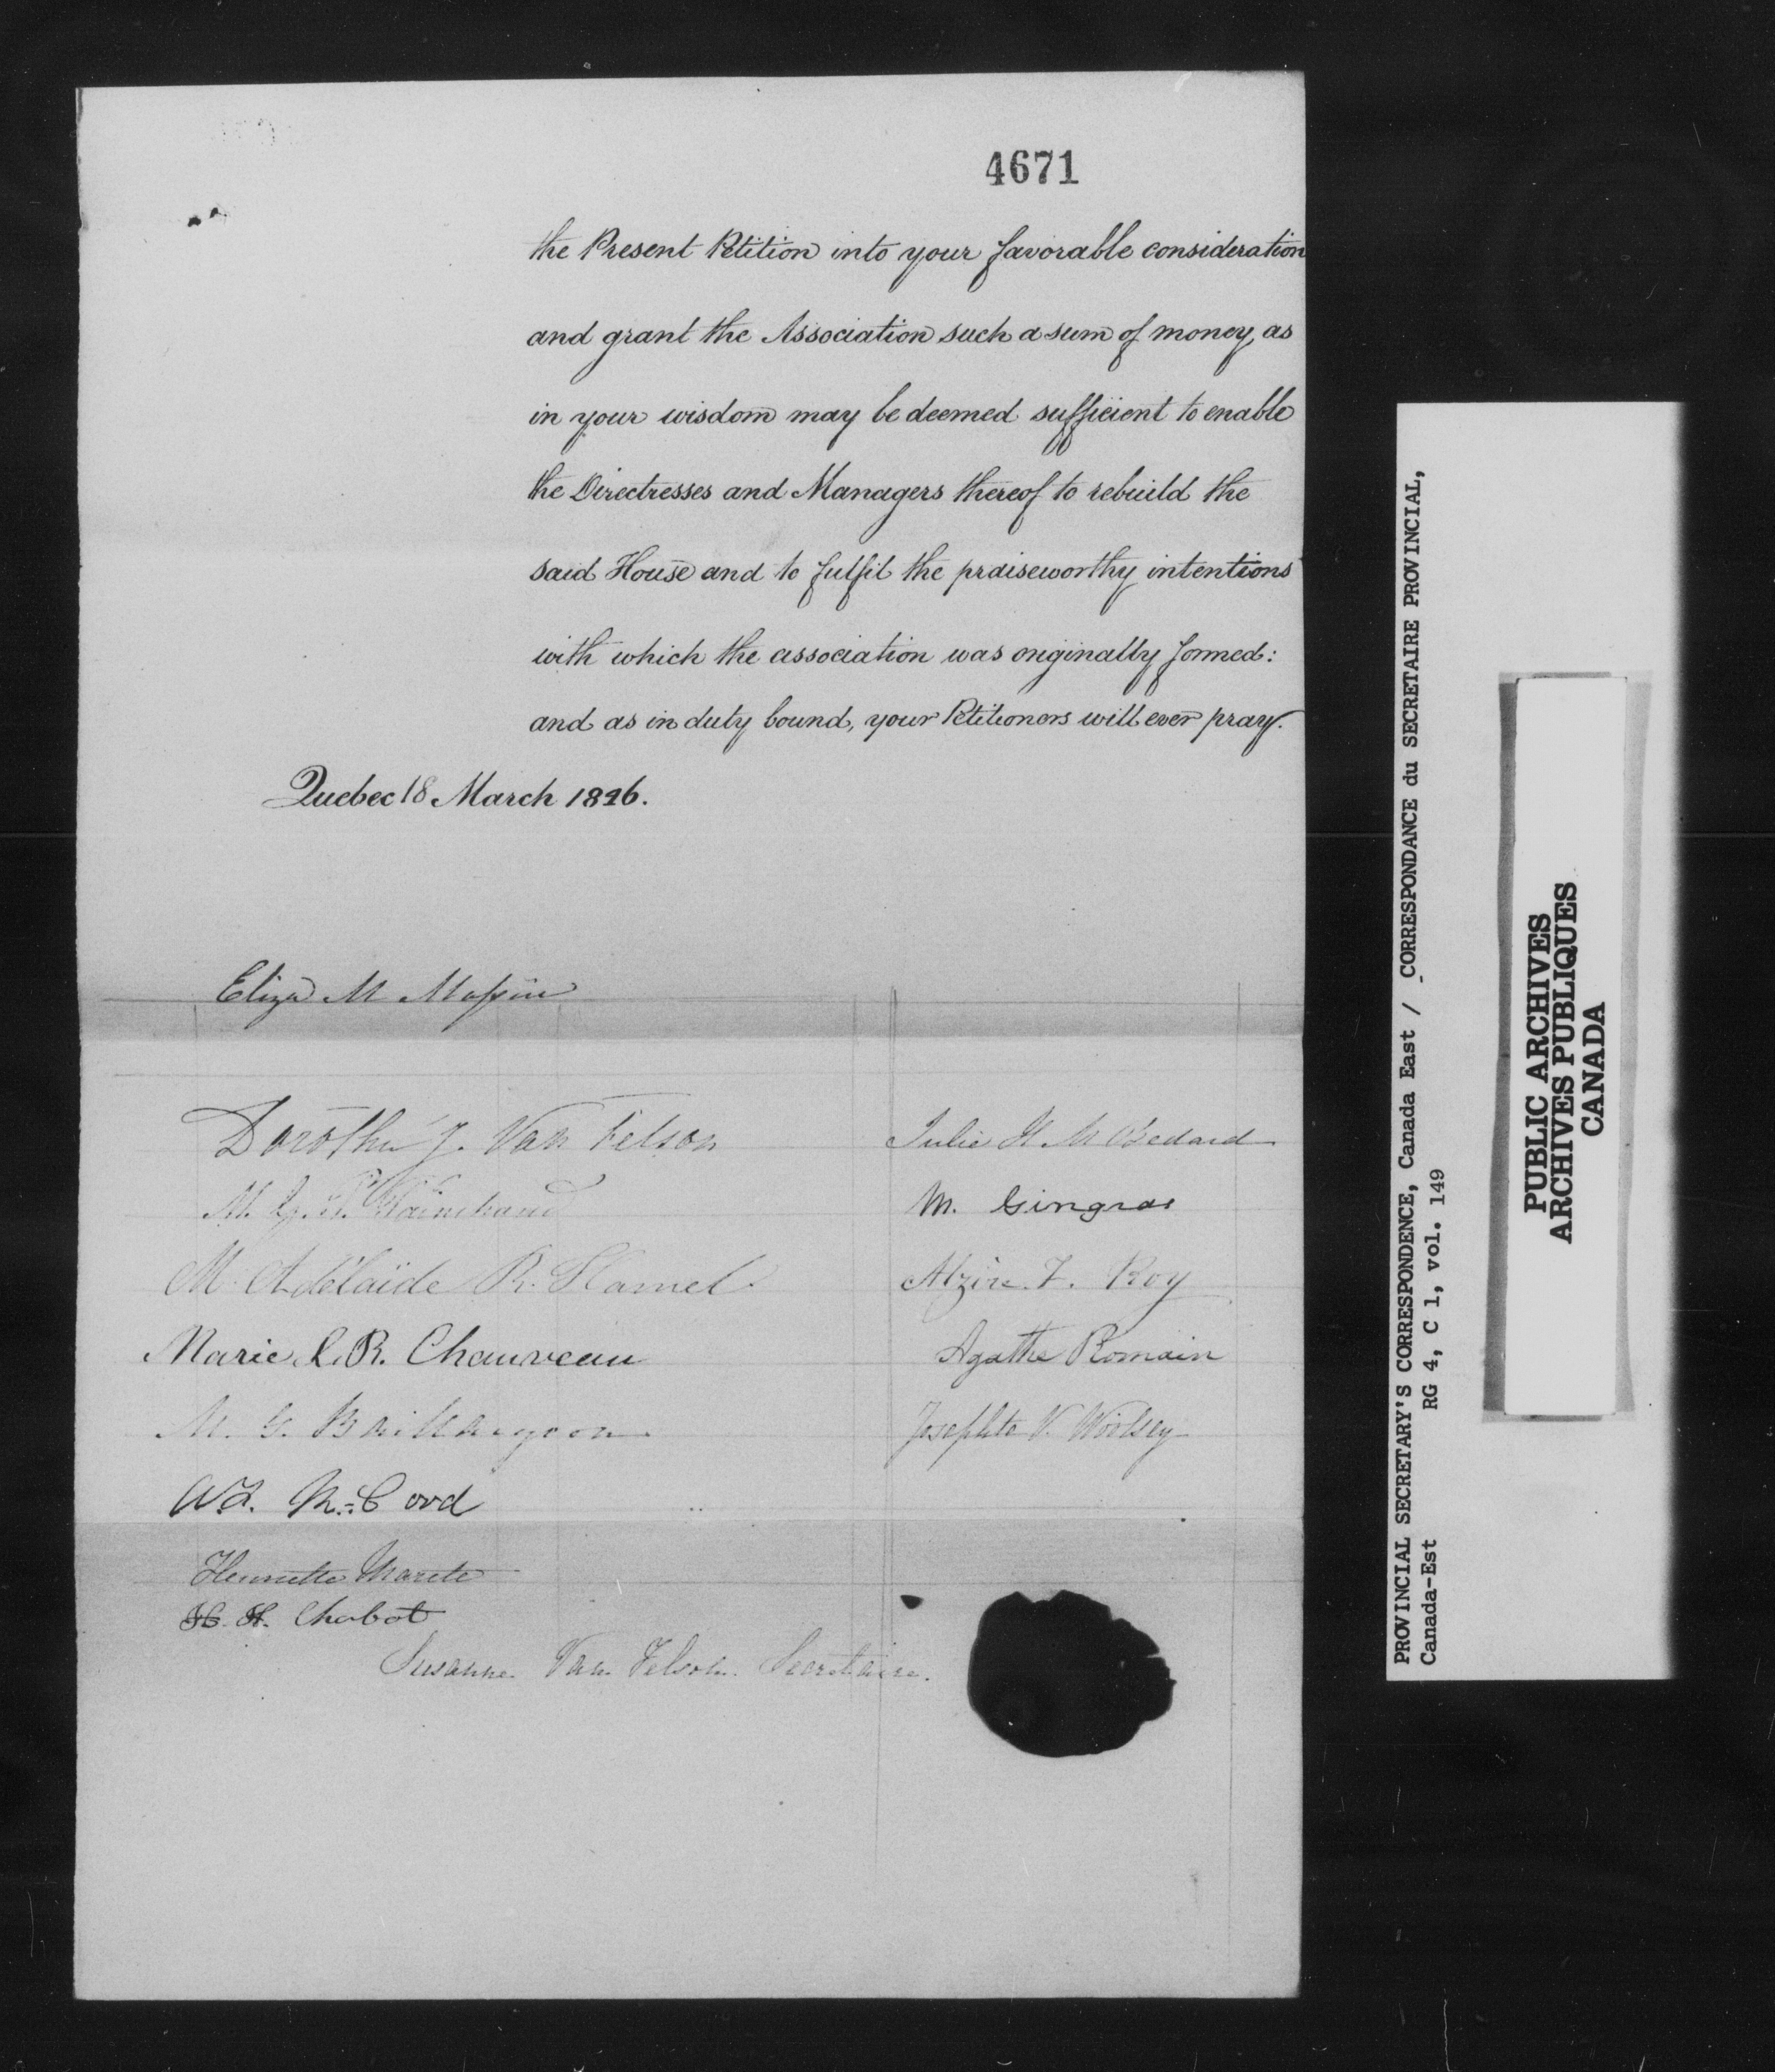 4671
the Present Petition into your favorable consideration
and grant the Association such a sum of money, as
in your wisdom may be deemed sufficient to enable
the Directresses and Managers thereof to rebuild the
said House and to fulfil the praiseworthy intentions
with which the association was originally formed:
and as in duty bound, your Petitioners will ever pray.
Quebec 18 March 1846.
Eliza M Massue
Dorothé J. Van Felson
M. Painchaud
M. Adélaïde R. Hamel
Marie L. R. Chauveau
M. G. Baillargeon
McCord
Henriette
H. Chabot
Susanne Van Felson. Secrétaire.
Julie H. M Bedard
M. Gingras
Alzire F. Roy
Agathe Romain
Josephte V. Woolsey
PROVINCIAL SECRETARY'S CORRESPONDENCE, Canada East / CORRESPONDANCE du SECRETAIRE PROVINCIAL,
Canada-Est RG 4, C 1, vol. 149
PUBLIC ARCHIVES
ARCHIVES PUBLIQUES
CANADA